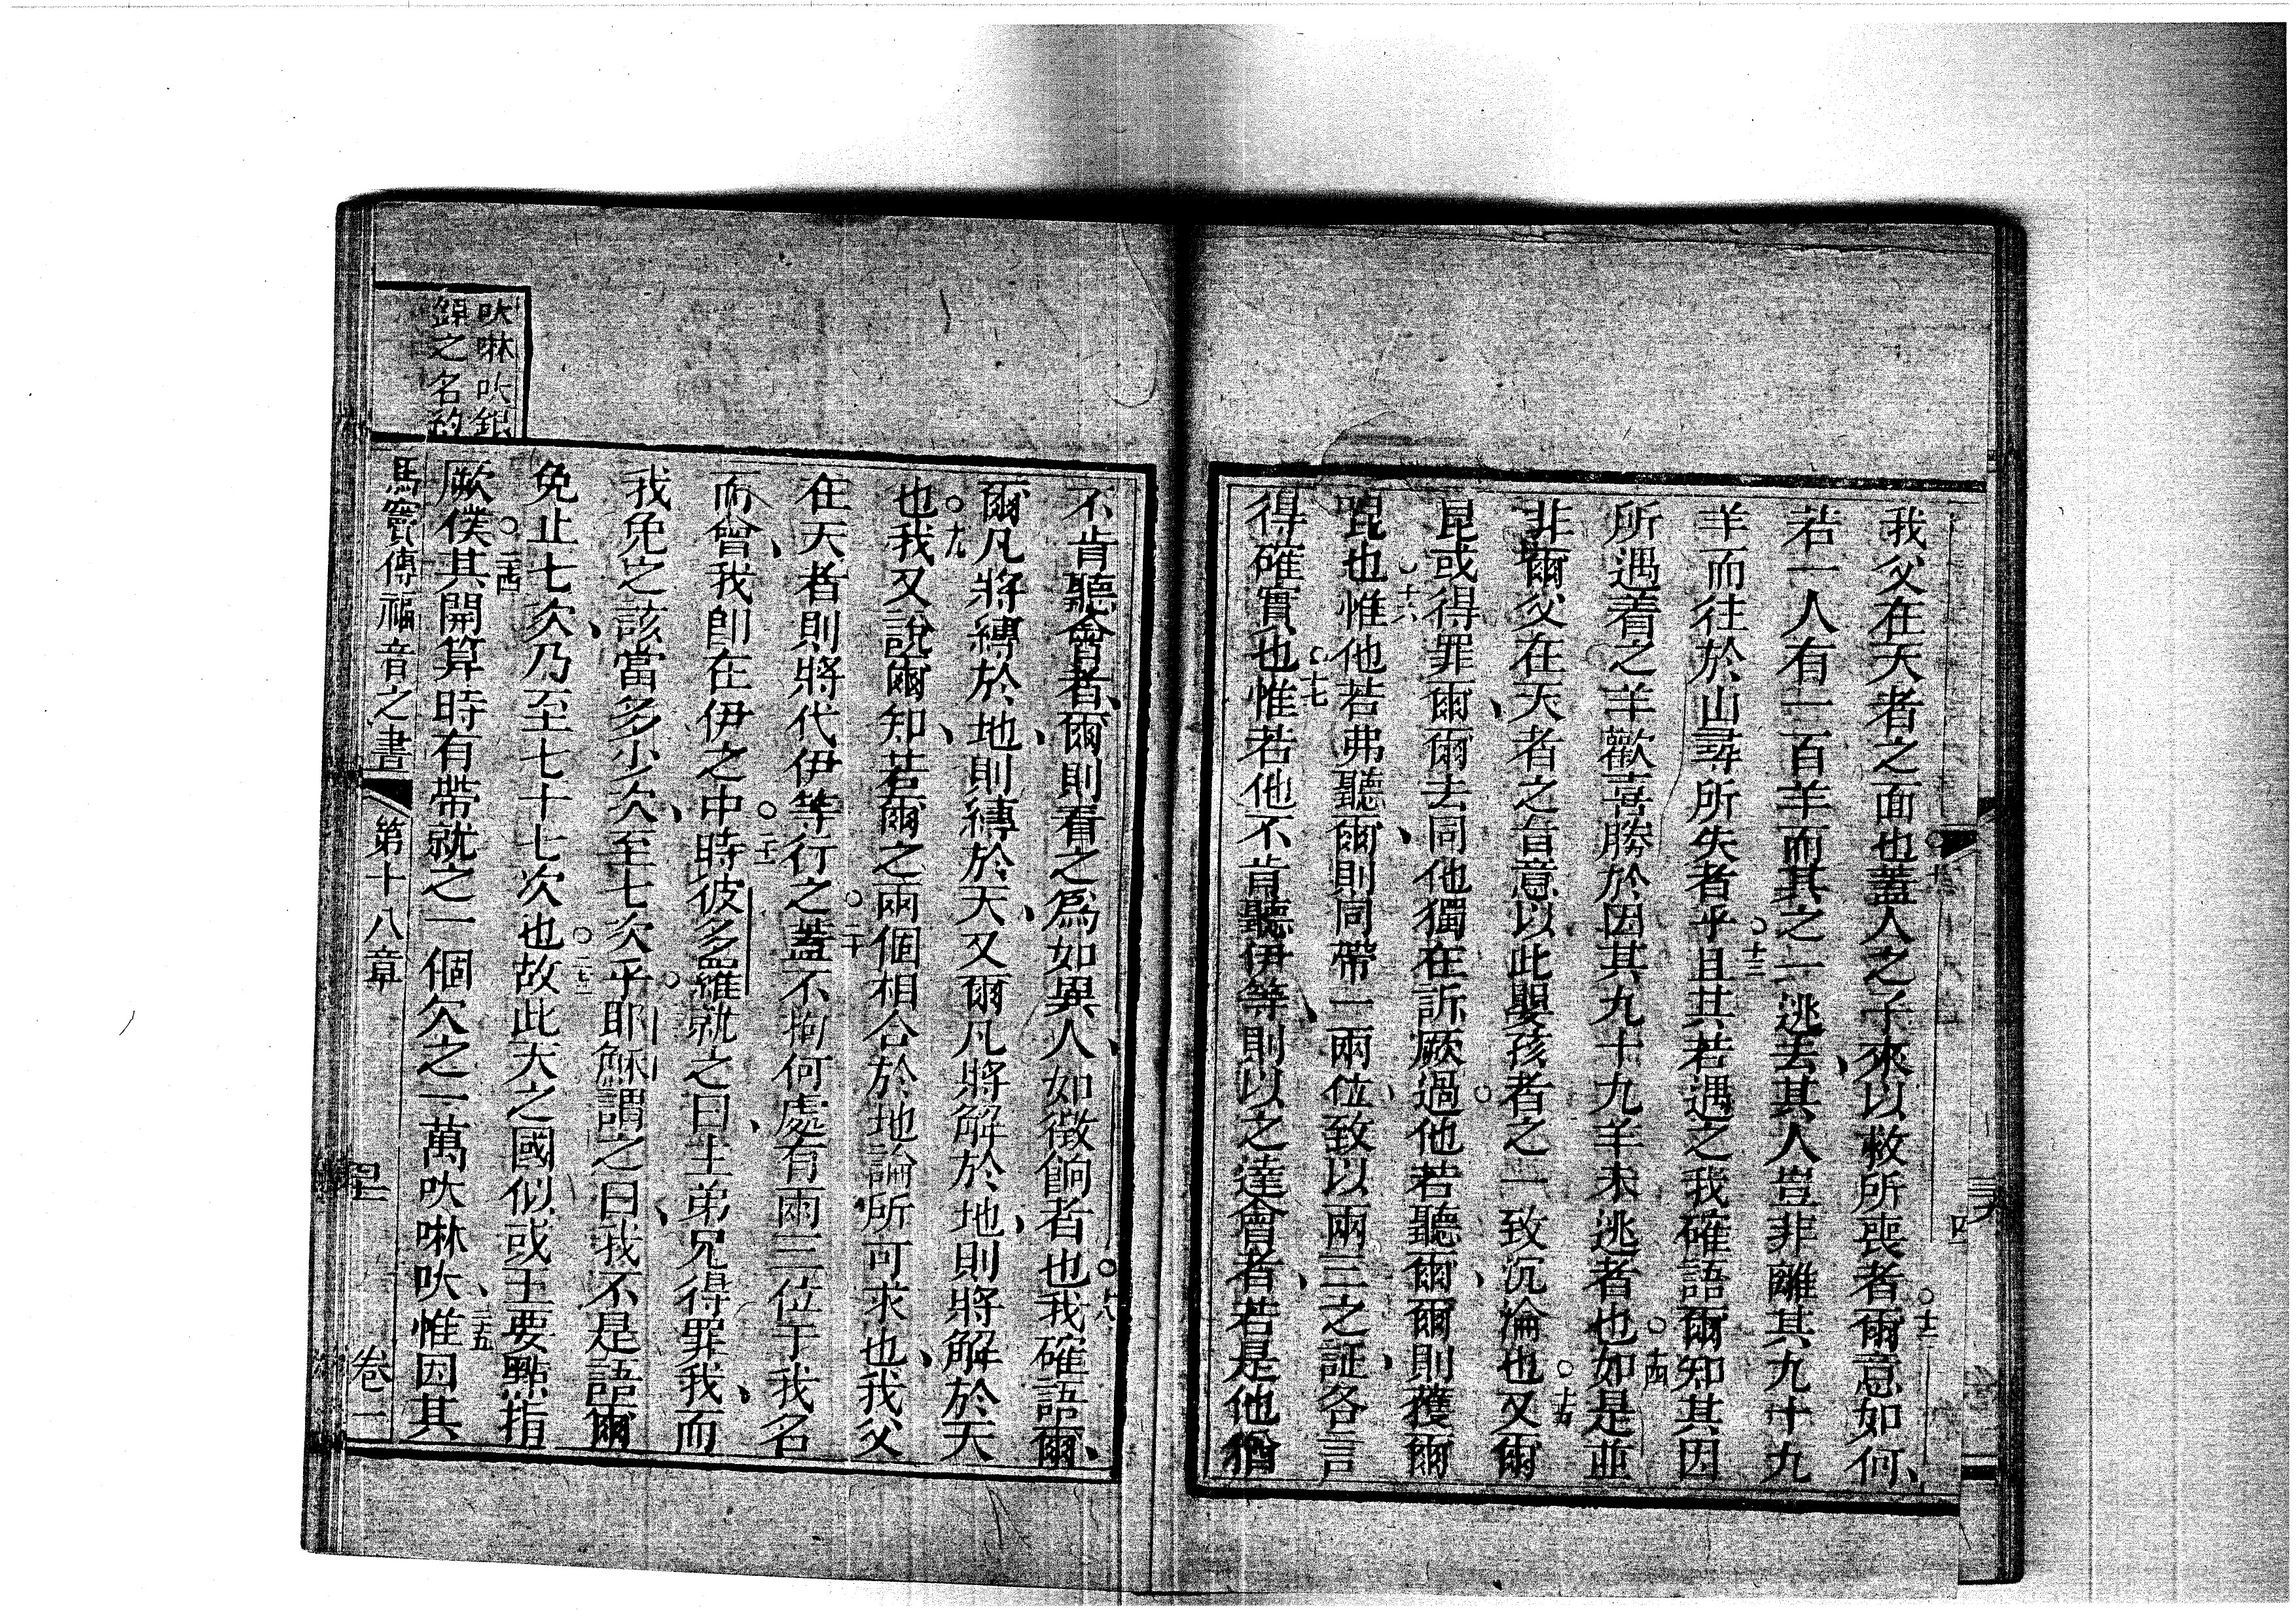 我父在天者之面也蓋人之子來以救所喪者爾意如何、
若一人有一百羊而其之一逃去其人豈非離其九十九
羊而往於山尋所失者乎且其若遇之我確語爾知其因
所遇着之羊歡喜勝於因其九十九羊未逃者也如是並
非爾父在天者之旨意以此嬰孩者之一致沉淪也又爾
昆或得罪爾、爾去同他獨在訴厥過他若聽爾、爾則獲爾
昆也惟他若弗聽爾、則同帶一兩位致以兩三之証、各言
得確實也惟若他不肯聽伊等、則以之達會者、若是他猶
不肯聽會者、爾則看之為如異人、如徵餉者也我確語爾、
爾凡將縛於地、則縛於天、又爾凡將解於地、則將解於天
也我又說爾知、若爾之兩個相合於地論所可求也、我父
在天者則將代伊等行之蓋不拘何處有兩三位于我名
而會、我即在伊之中時彼多羅就之曰、主弟兄得罪我、而
我免之該當多少次、至七次乎耶穌謂之曰、我不是語爾
免止七次、乃至七十七次也故此天之國似或王要點指
厥僕其開算時有帶就之一個欠之一萬吙啉吙、惟因其
馬竇傳福音之書 第十八章 卷一
吙啉吙銀
錁之名約
十三
十四
十五
十六
十七
十八
十九
二十